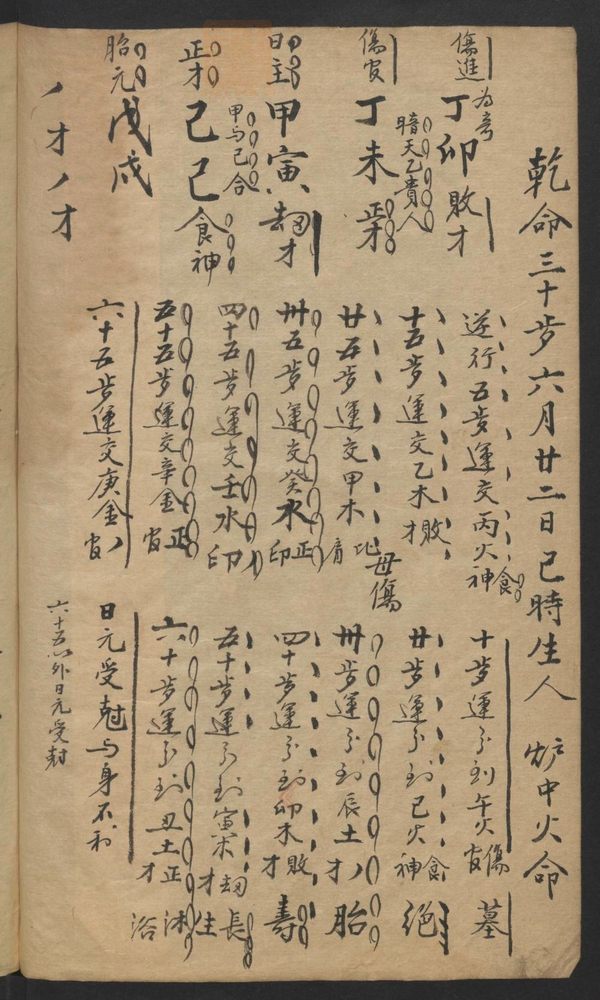 乾命三十步六月廿二日巳時生人 炉中火命
傷進 丁卯敗才
為旁
暗天乙貴人
傷官 丁未正才
日主 甲寅劫才
甲与己合
正才 己巳食神
胎元 戊戌
才
才
逆行五步運交丙火食神
十五步運交乙木敗才
廿五步運交甲木比肩
母傷
卅五步運交癸水正印
四十五步運交壬水印
五十五步運交辛金正官
六十五步運交庚金官
十步運行到午火傷官 墓
廿步運行到巳火食神 絕
卅步運行到辰土才 胎
四十步運行到卯木敗才 壽
五十步運行到寅木劫才 長生
六十步運行到丑土正才 沐浴
日元受尅与身不利
六十五以外日元受尅